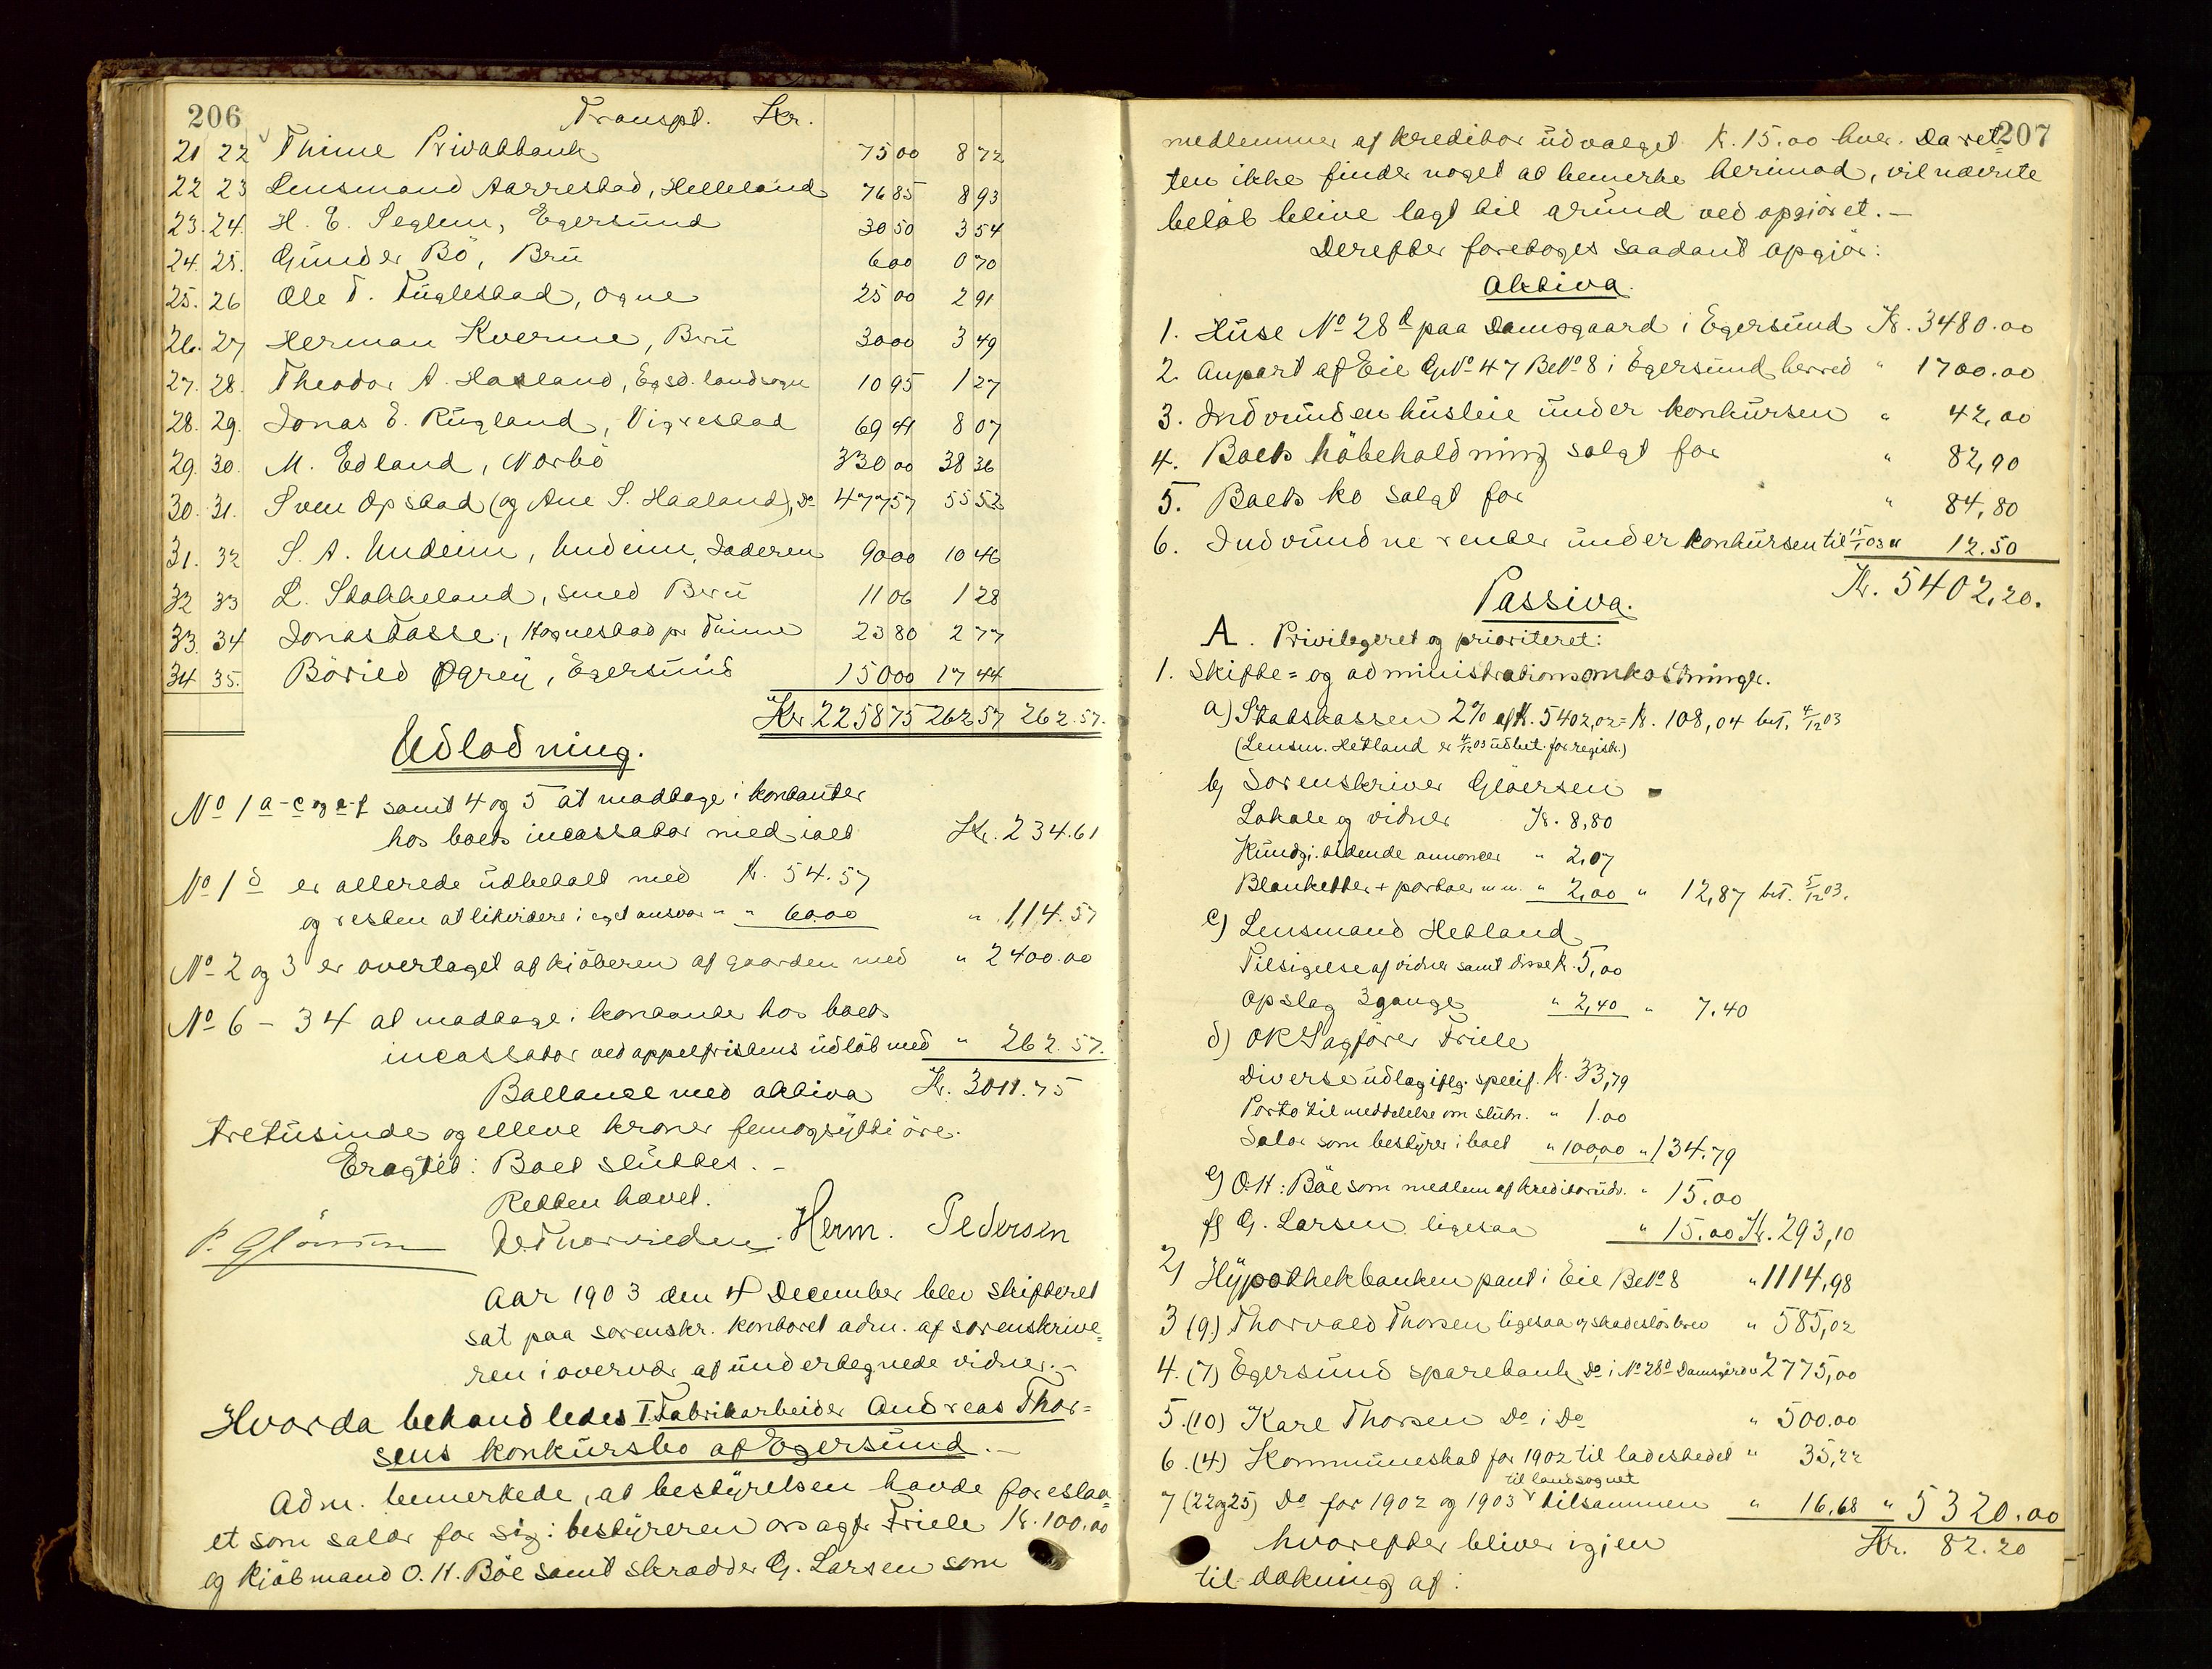 206
Transpt. Kr.
21 22 Thime Privatbank 75 00 8 72
22 23 Lensmand Aarrestad, Helleland 76 85 8 93
23. 24. H. E. Seglem, Egersund 30 50 3 54
24. 25. Gunder Bö, Bru 6 00 0 70
25. 26 Ole T. Fuglestad, Ogne 25 00 2 91
26. 27 Herman Kverme, Bru 30 00 3 49
27. 28. Theodor A. Haaland, Egsd. landsogn 10 95 1 27
28. 29. Jonas E. Rugland, Vigrestad 69 41 8 07
29. 30. M. Edland, Nærbö 330 00 38 36
30. 31. Sven Opstad (og Ane S. Haaland), Do 477 57 55 52
31. 32 S. A. Undeim, Undeim, Jæderen 90 00 10 46
32 33 L. Stokkeland, smed Bru 11 06 1 28
33. 34 Jonas Tasse, Hognestad pr Thime 23 80 2 77
34 35. Böried Øgrey, Egersund 150 00 17 44
Kr 2258 75 262 57 262.57.
Udlodning.
No 1 a-c og e-f samt 4 og 5 at modtage i kontanter
hos boets incassator med ialt Kr. 234.61
No 1 d er allerede udbetalt med K. 54.57
og resten at likvidere i eget ansvar " " 60.00 " 114.57
No 2 og 3 er overtaget af kjöberen af gaarden med " 2400.00
No 6 - 34 at modtage i kontanter hos boets
incassator ved appelfristens udlöb med " 262.57.
Ballance med aktiva Kr. 3011.75
tretusinde og elleve kroner femogsytti öre.
Eragtet: Boet sluttes. -
Retten hævet.
P. Glöersen Herm. Pedersen
Aar 1903 den 4 December blev skifteret
sat paa sorenskr. kontoret adm. af sorenskrive=
ren i overvær af undertegnede vidner. -
Hvorda behandledes I. Fabrikarbeider Andreas Thor=
sens konkursbo af Egersund. -
Adm. bemerkede, at bestyrelsen havde foreslaa=
et som salær for sig: bestyreren orsagf. Friele K. 100.00
og kjöbmand O. H. Böe samt skrædder G. Larsen som
207
medlemmer af kreditorudvalget K. 15.00 hver. Da ret=
ten ikke finder noget at bemerke herimod, vil nævnte
belöb blive lagt til grund ved opgjöret. -
Derefter foretoges saadant opgjör:
Aktiva.
1. Huse No 28 d paa Damsgaard i Egersund Kr. 3480.00
2. Anpart af Eie GNo 47 BNo 8 i Egersund herred " 1700.00
3. Indvunden husleie under konkursen " 42,00
4. Boets höbeholdning solgt for " 82,90
5. Boets ko solgt for " 84,80
6. Indvundne renter under konkursen til 15/1 03 " 12.50
Kr. 5402,20.
Passiva.
A. Privilegeret og prioriteret:
1. Skifte= og administrationsomkostninger.
a) Statskassen 2% af K. 5402,02 = K. 108,04 bet. 4/12 03
(Lensm. Hetland er 4/12 03 udbet. for registr.)
b) Sorenskriver Glöersen
Lokale og vidner Kr. 8,80
Kundgj. bidende annoncer " 2,07
Blanketter + portoer m.m. " 2,00 " 12,87 bet. 5/12 03.
c) Lensmand Hetland
Tilsigelse af vidner samt disse K. 5,00
Opslag 3 gange " 2,40 " 7.40
d) ORSagförer Friele
Diverse udlag iflg. specif. K. 33,79
Porto til meddelelse om slutn. " 1.00
Salær som bestyrer i boet " 100,00 " 134.79
e) O. H. Böe som medlem af kreditorudv. " 15.00
f) G. Larsen ligesaa " 15.00 Kr. 293,10
2) Hypothekbanken pant i Eie BNo 8 " 1114,98
3 (9.) Thorvald Thorsen ligesaa og skadeslösbrev " 585,02
4. (7) Egersund sparebank Do i No 28 d Damsgård " 2775,00
5. (10) Karl Thorsen Do i Do " 500.00
6. (4) Kommuneskat for 1902 til ladestedet " 35,22
til landsognet
7 (22 og 25) Do for 1902 og 1903 tilsammen " 16.68 " 5320.00
hvorefter bliver igjen Kr. 82.20
til dækning af: